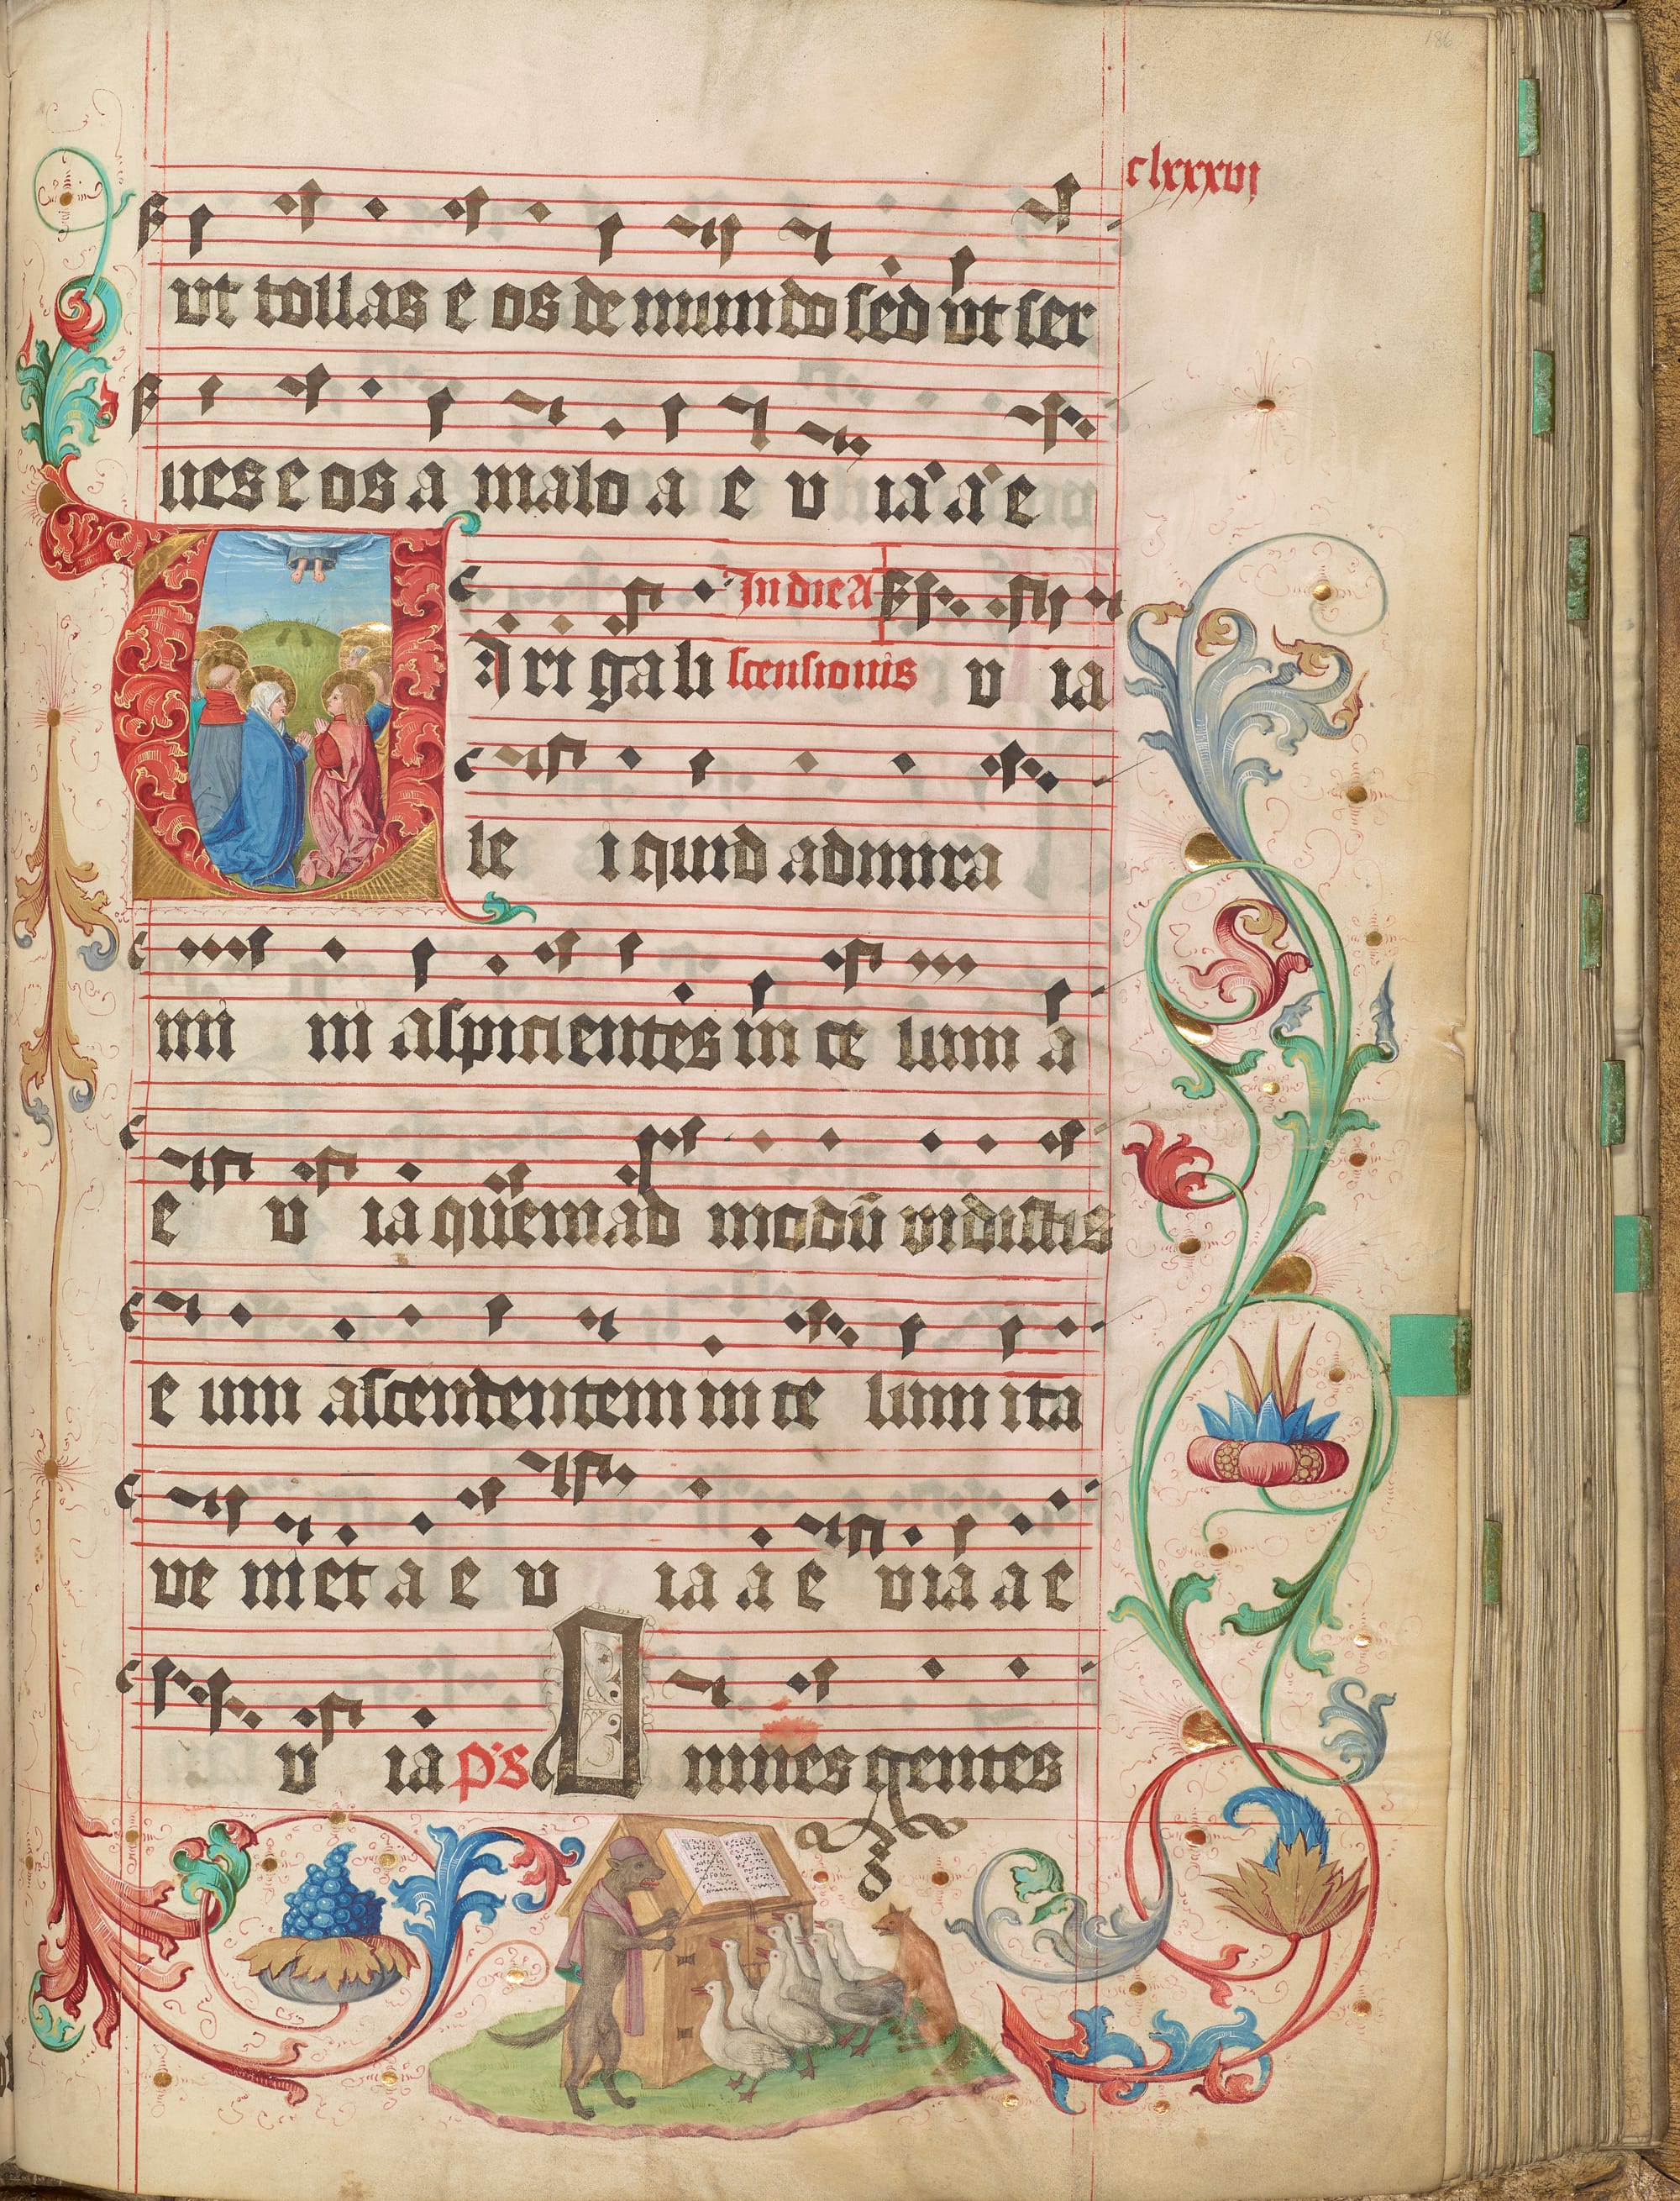 clxxxvi
ut tollas e os de mundo sed ut ser
ues e os a malo a e v ia a e
V iri gali In die A
scensionis v ia
le i quid admira
mi ni aspicientes in ce lum a
e v ia quemad modū vidistis
e um ascendentem in ce lum ita
ve niet a e v ia a e via a e
v ia p̄s Omnes gentes